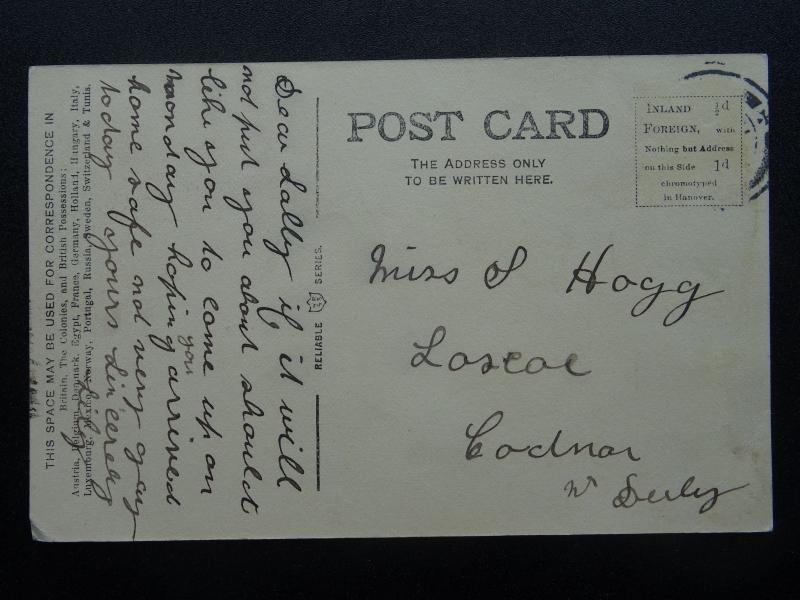 THIS SPACE MAY BE USED FOR CORRESPONDENCE IN
Britain, The Colonies, and British Possessions;
Austria, Belgium, Denmark, Egypt, France, Germany, Holland, Hungary, Italy,
Luxembourg, Mexico, Norway, Portugal, Russia, Sweden, Switzerland & Tunis.
Dear Sally if it will
not put you about should
like you to come up on
monday hoping you arrived
home safe not very gay
today yours sincerely
Lily
RELIABLE SERIES.
POST CARD
THE ADDRESS ONLY
TO BE WRITTEN HERE.
INLAND ½d
FOREIGN, with
Nothing but Address
on this Side 1d
chromotyped
in Hanover.
Miss S Hogg
Loscoe
Codnor
Nr Derby